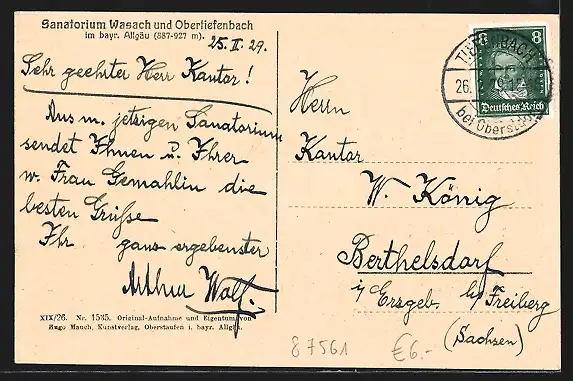 Sanatorium Wasach und Obertiefenbach
im bayr. Allgäu (887-927 m).
25. II. 29.
Sehr geehrter Herr Kantor!
Aus m. jetzigen Sanatorium
sendet Ihnen u. Ihrer
w. Frau Gemahlin die
besten Grüße
Ihr ganz ergebenster
Arthur Wolf.
XIX/26. Nr. 1535. Original-Aufnahme und Eigentum von
Hugo Mauch, Kunstverlag, Oberstaufen i. bayr. Allgäu.
8
Deutsches Reich
TIEFENBACH
26.
bei Oberstdorf
Herrn
Kantor
W. König
Berthelsdorf
i/ Erzgeb. b/ Freiberg
(Sachsen)
87561
€6.-